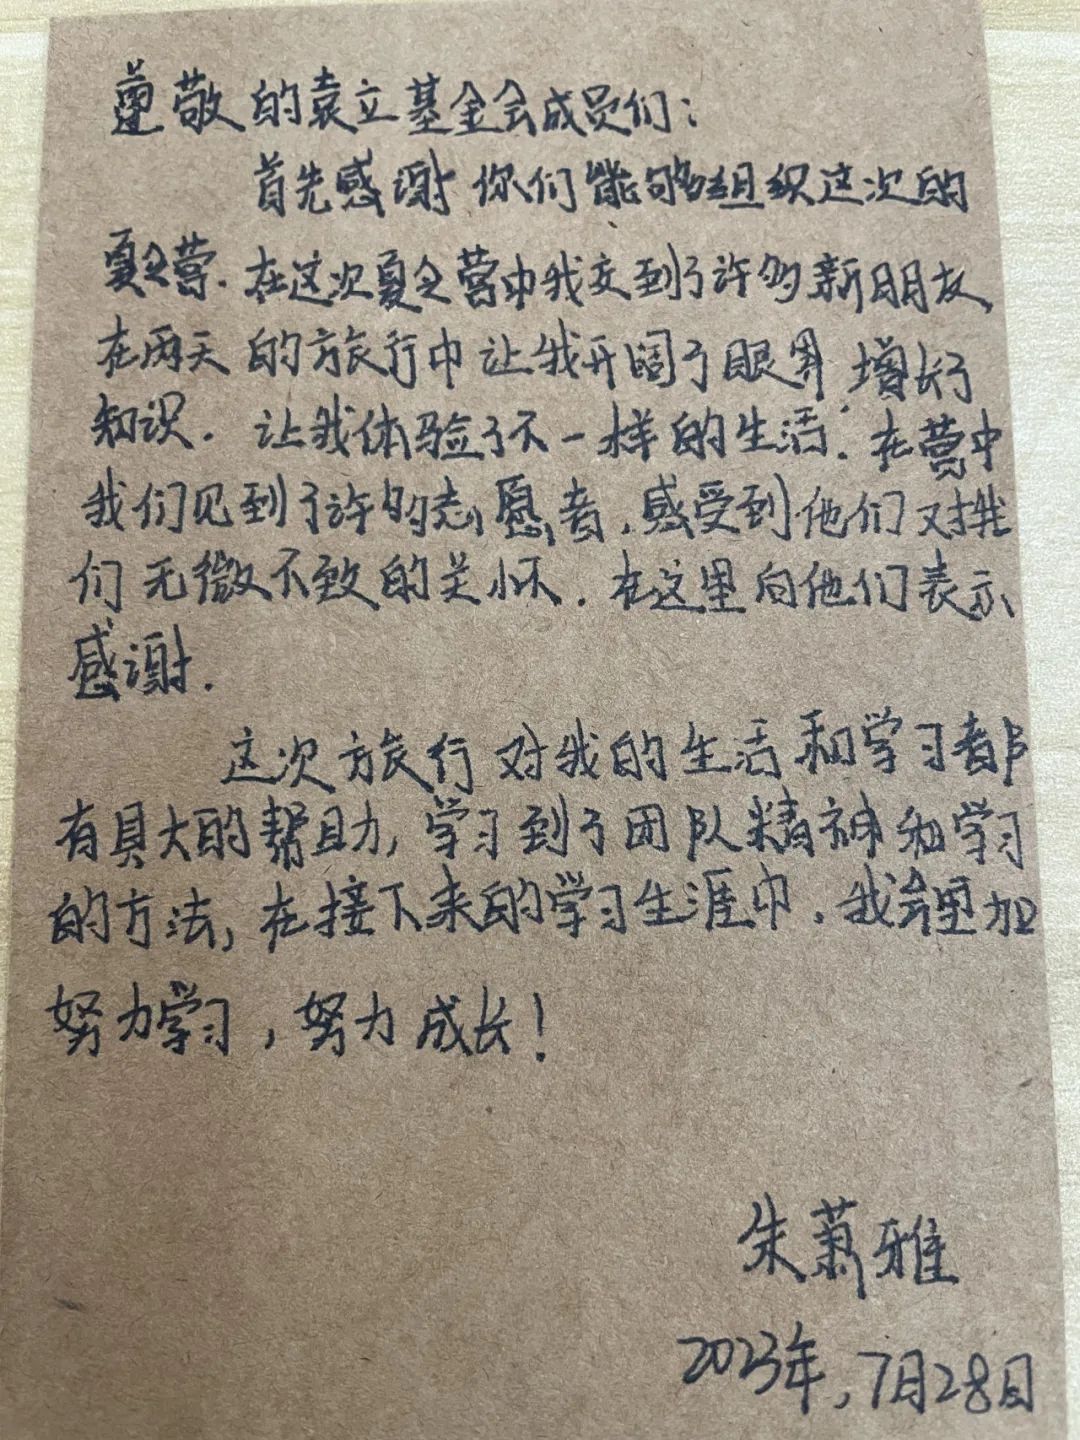 尊敬的袁立基金会成员们：
首先感谢你们能够组织这次的
夏令营.在这次夏令营中我交到了许多新朋友,
在两天的旅行中让我开阔了眼界,增长了
知识.让我体验了不一样的生活.在营中
我们见到了许多的志愿者,感受到他们对我
们无微不致的关怀.在这里向他们表示
感谢.
这次旅行对我的生活和学习都
有具大的帮助,学习到了团队精神和学习
的方法,在接下来的学习生涯中,我会更加
努力学习,努力成长!
朱萧雅
2023年,7月28日